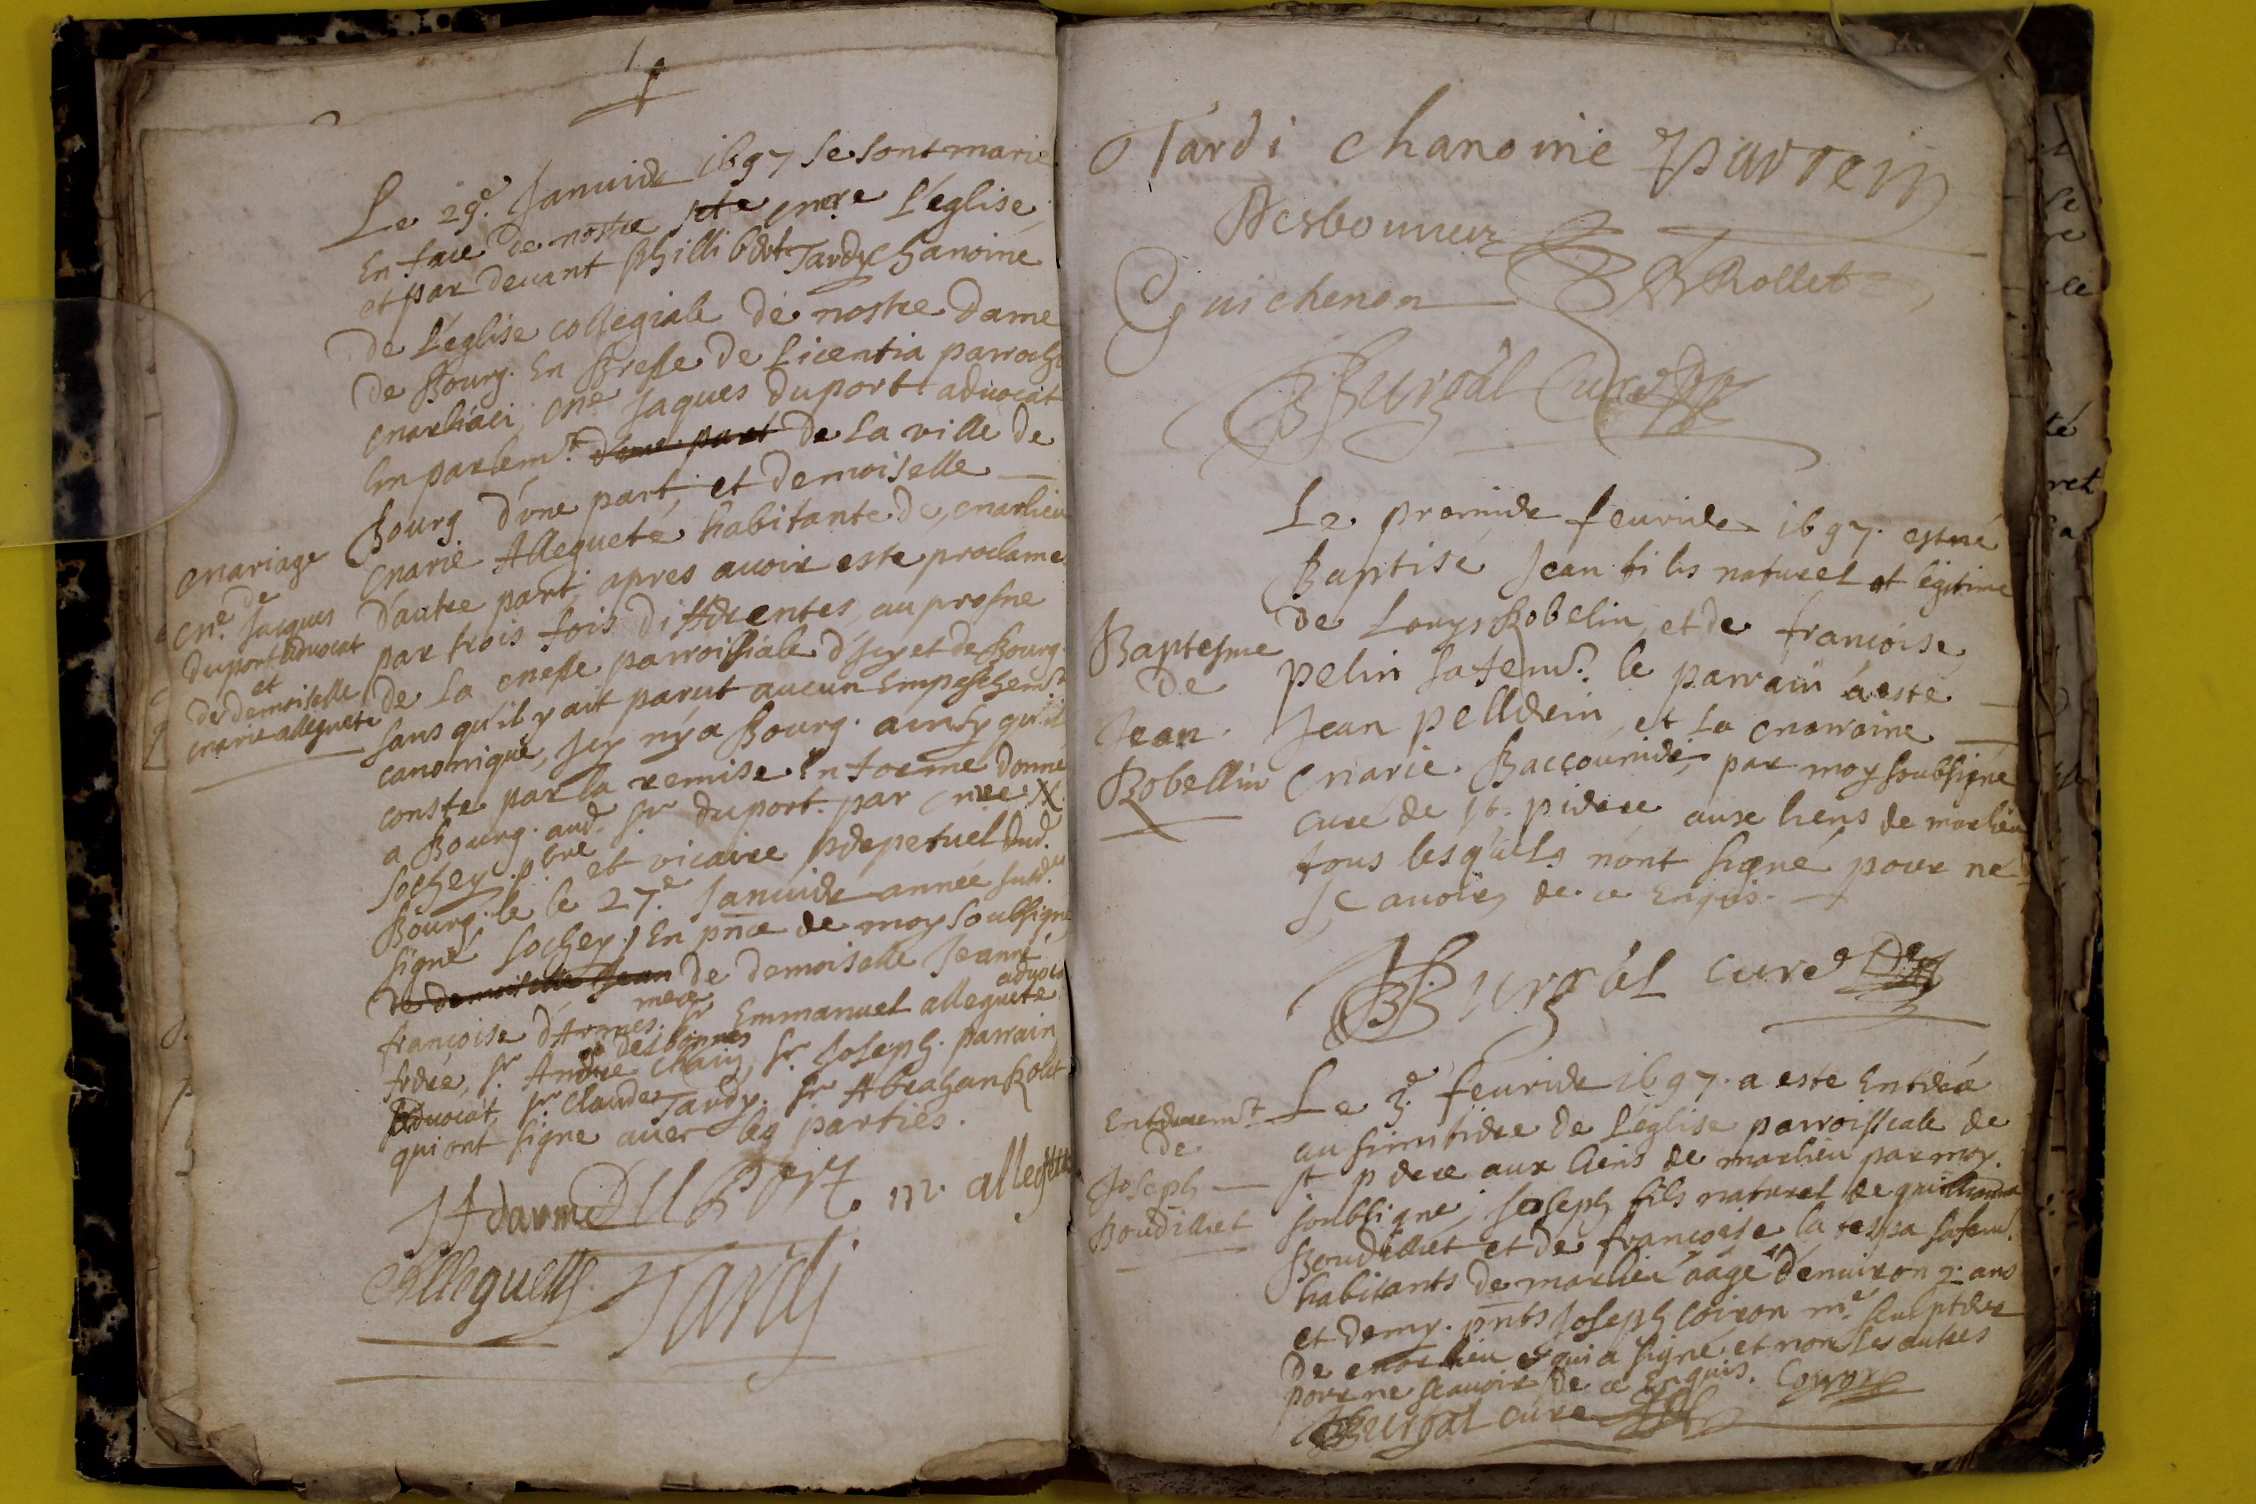 Le 29e. Januier 1697 se sont marie
En face de nostre ste mere L'eglise,
et par deuant Phillibert Tardy chanoine
de L'eglise collegiale de nostre Dame
de Bourg. En Bresse de Licentia parrochi
marliaci, me Jaques duport aduocat
En parlemt. d'une part de La ville de
Bourg d'vne part, et demoiselle
marie Alleguete habitante de marlieu
d'autre part, apres auoir este proclame
par trois fois differentes, au prosne
de La messe parroissiale d'Icy et de Bourg.
sans qu'il y ait parut aucun Empeschemt
canonique, Icy ny a Bourg. ainsy qu'il
conste par la remise En forme donné
a Bourg. aud. sr duport. par mre
Sochey. pbre et vicaire perpetuel dud.
Bourg. le le 27e. Januier année susd.
signé Sochey. / En pnce de moy soubsigné
de demoiselle Jean de demoiselle Jeanne
françoise d'Armes. mere, sr Emmanuel alleguete aduocat
frere, sr. Andre Desbonnes sr. Joseph. parrain
aduocat, sr. claude Tardy. sr Abraham Rolet
qui ont signe auec les parties.
mariage
de
me. Jacques
duport aduocat
et
de demoiselle
marie alleguete
J f darme Duport. m. allegue
Alleguette. Tardy
Tardi chanoine Parrein
Desbonnes
Guichenon Rollet
Burgal Curé
Le premier feurier 1697. est né
Baptisé Jean fils naturel et légitime
de Louys Robelin, et de françoise
pelin sa femt. le parrain a este
Jean pellerin, et La marraine
marie. Baccounier, par moy soubsigné
curé de st. pierre aux liens de marlieu
tous lesquels n'ont signé pour ne
scauoir, de ce Enquis.
Baptesme
de
Jean.
Robellin
Burgal curé
Le 3e. feurier 1697. a este Enterré
au simitiere de L'église parroissiale de
st pierre aux liens de marlieu par moy
soubsigné, Joseph fils naturel de
Boudilliet et de françoise la sa fem.
habitants de marlieu aagé d'enuiron 2. ans
et demy. pnts Joseph Coiron me. sculpter
de marlieu qui a signé et non les autres
pour ne scauoir de ce Enquis. Coyron
Enterremt
de
Joseph
Boudilliet
Burgal curé